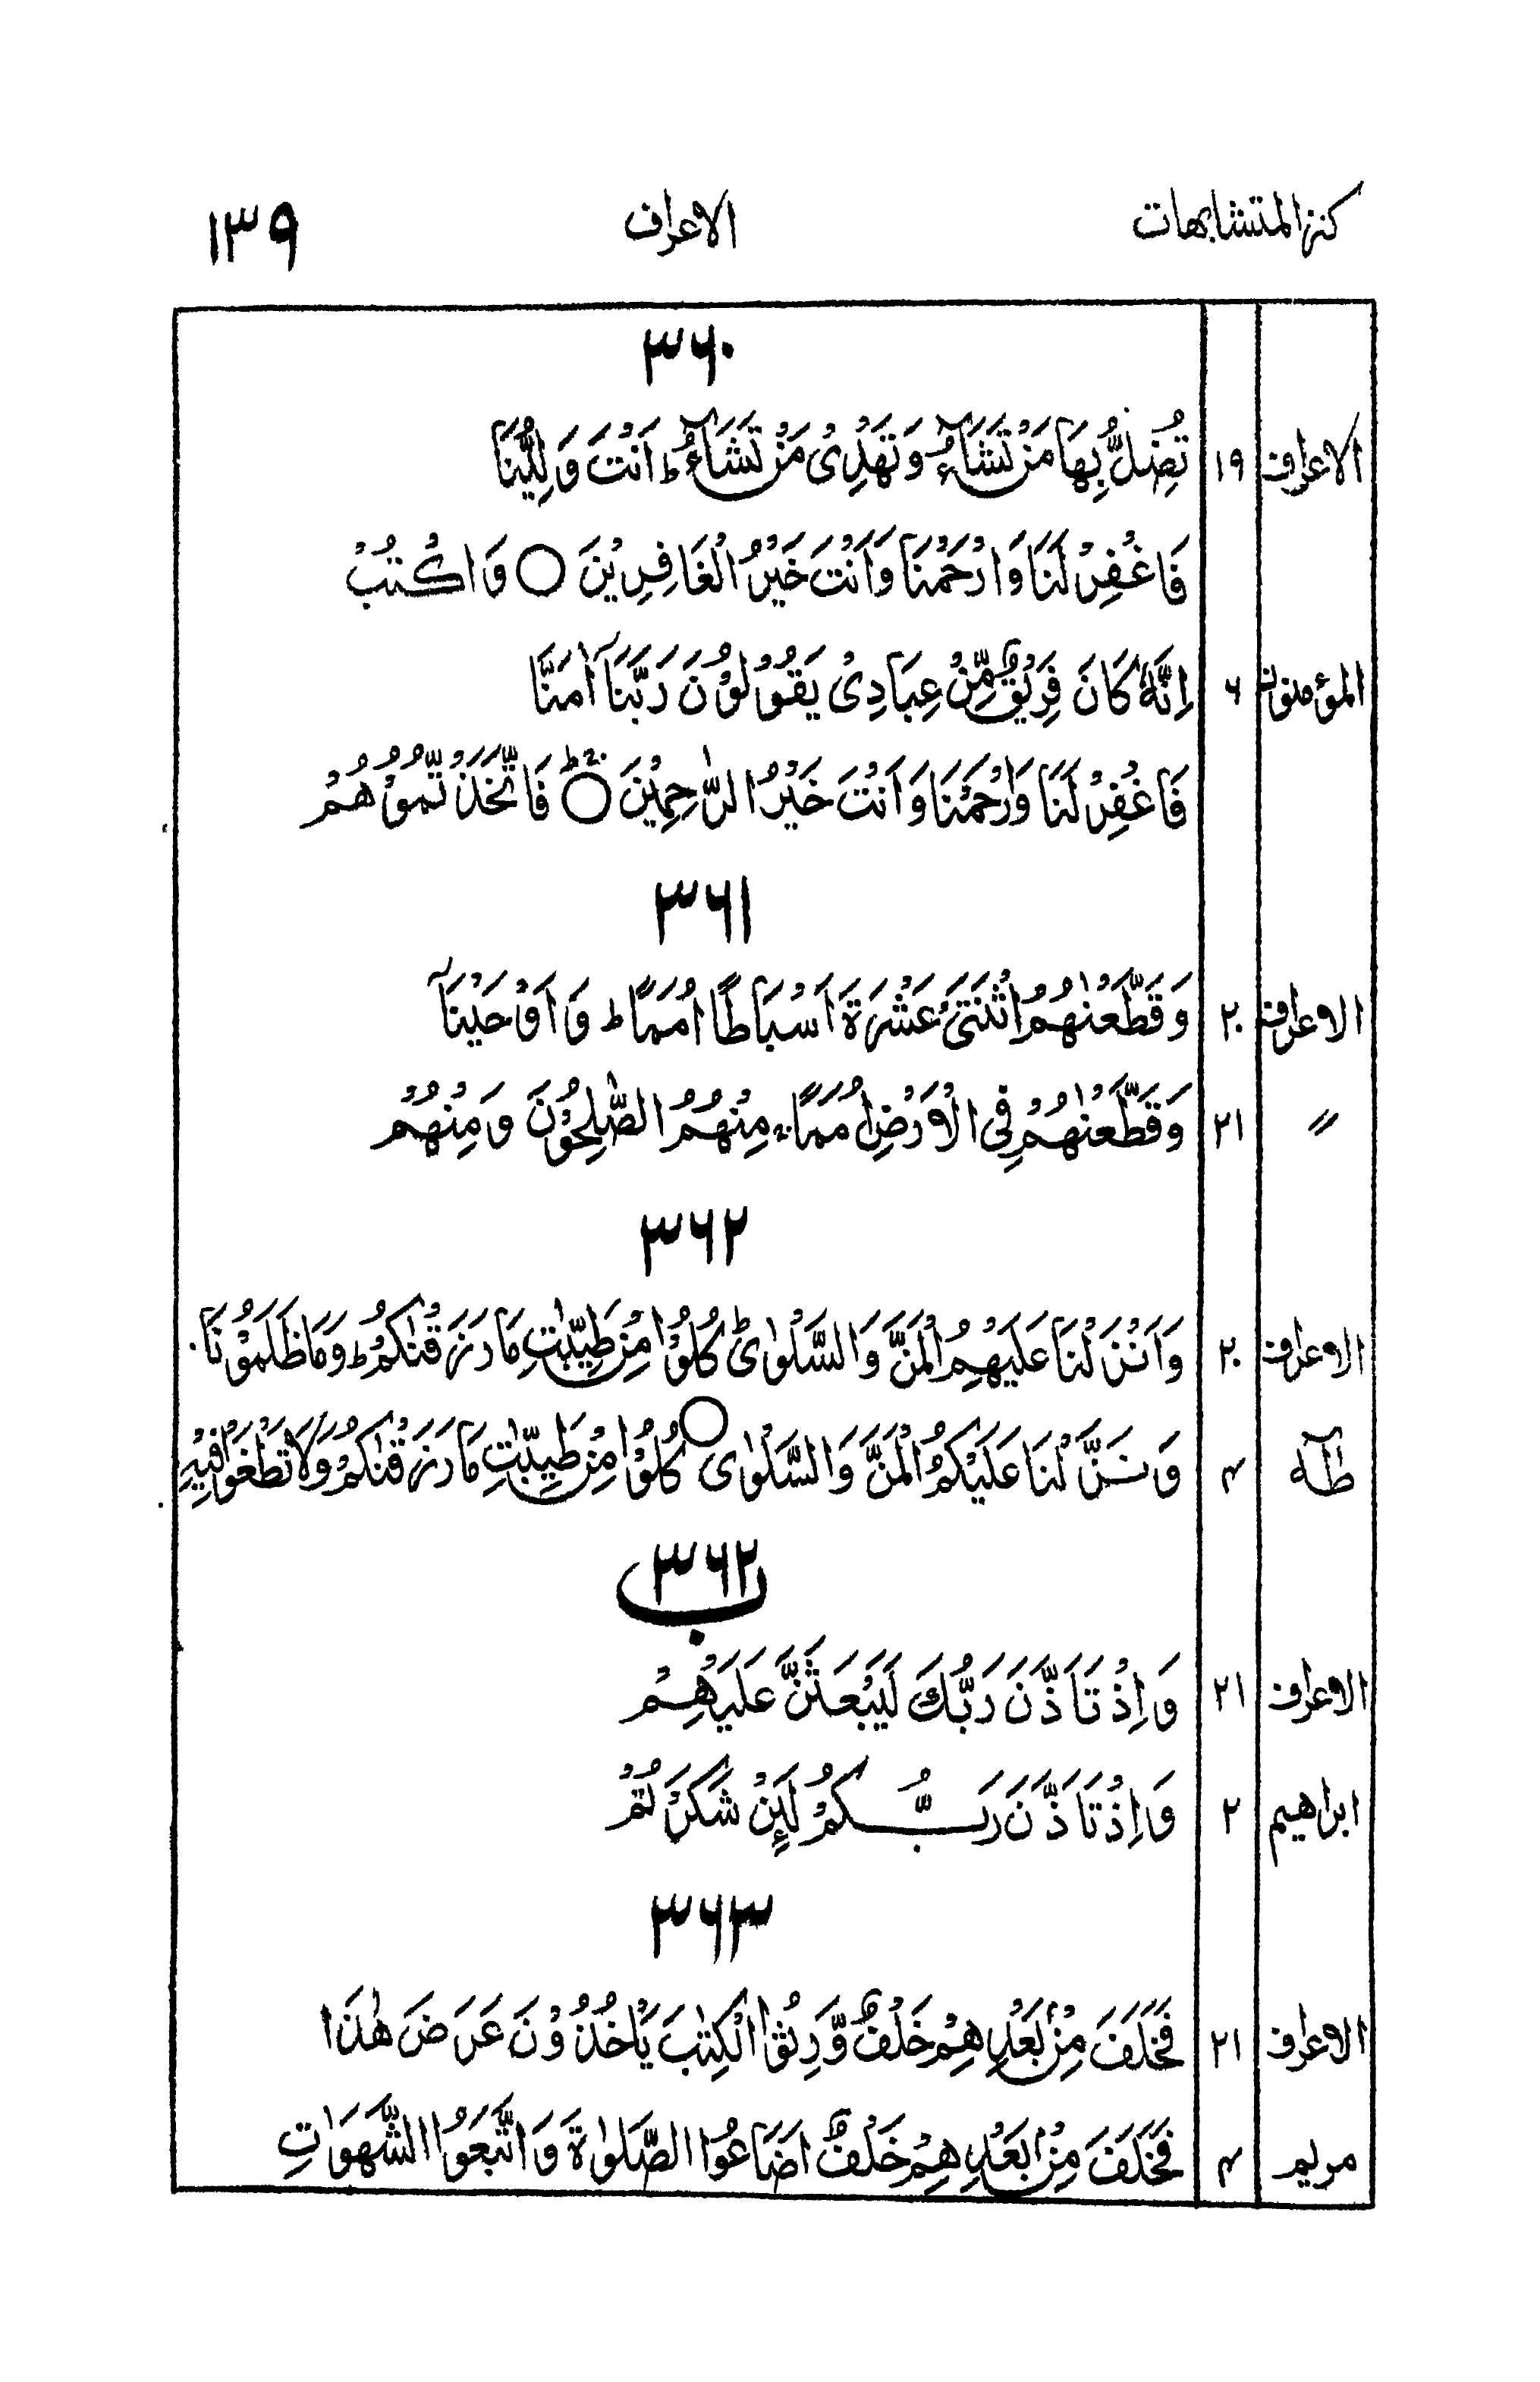 كنز المتشابهات الاعراف ١٣٩
٣٦٠
الاعراف ١٩ تُضِلُّ بِهَا مَنْ تَشَآءُ وَ تَهْدِیْ مَنْ تَشَآءُ ؕ اَنْتَ وَلِیُّنَا
فَاغْفِرْ لَنَا وَارْحَمْنَا وَاَنْتَ خَیْرُ الْغَافِرِیْنَ ○ وَاكْتُبْ
المؤمنون ٦ اِنَّهٗ كَانَ فَرِیْقٌ مِّنْ عِبَادِیْ یَقُوْلُوْنَ رَبَّنَاۤ اٰمَنَّا
فَاغْفِرْ لَنَا وَارْحَمْنَا وَاَنْتَ خَیْرُ الرّٰحِمِیْنَ ○ فَاتَّخَذْتُمُوْهُمْ
٣٦١
الاعراف ٢٠ وَقَطَّعْنٰهُمُ اثْنَتَیْ عَشْرَةَ اَسْبَاطًا اُمَمًا ؕ وَاَوْحَیْنَاۤ
〃 ٢١ وَقَطَّعْنٰهُمْ فِی الْاَرْضِ اُمَمًا ۚ مِنْهُمُ الصّٰلِحُوْنَ وَمِنْهُمْ
٣٦٢
الاعراف ٢٠ وَاَنْزَلْنَا عَلَیْهِمُ الْمَنَّ وَالسَّلْوٰی ؕ كُلُوْا مِنْ طَیِّبٰتِ مَا رَزَقْنٰكُمْ ؕ وَمَا ظَلَمُوْنَا
طٰهٰ ۴ وَنَزَّلْنَا عَلَیْكُمُ الْمَنَّ وَالسَّلْوٰی ○ كُلُوْا مِنْ طَیِّبٰتِ مَا رَزَقْنٰكُمْ وَلَا تَطْغَوْا فِیْهِ
٣٦٢ ب
الاعراف ٢١ وَاِذْ تَاَذَّنَ رَبُّكَ لَیَبْعَثَنَّ عَلَیْهِمْ
ابراهيم ٢ وَاِذْ تَاَذَّنَ رَبُّكُمْ لَئِنْ شَكَرْتُمْ
٣٦٣
الاعراف ٢١ فَخَلَفَ مِنْۢ بَعْدِهِمْ خَلْفٌ وَّرِثُوا الْكِتٰبَ یَاْخُذُوْنَ عَرَضَ هٰذَا
مريم ۴ فَخَلَفَ مِنْۢ بَعْدِهِمْ خَلْفٌ اَضَاعُوا الصَّلٰوةَ وَاتَّبَعُوا الشَّهَوٰتِ